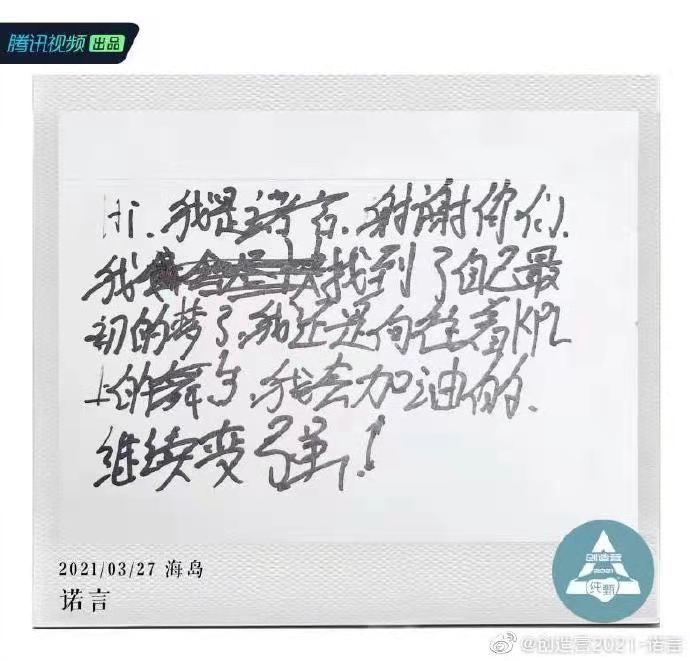 腾讯视频 出品
Hi、我是诺言、谢谢你们、
我找到了自己最
初的梦了、我还是向往着KPL
上的舞台、我会加油的、
继续变强!
2021/03/27 海岛
诺言
创造营
2021
纯甄
@创造营2021-诺言